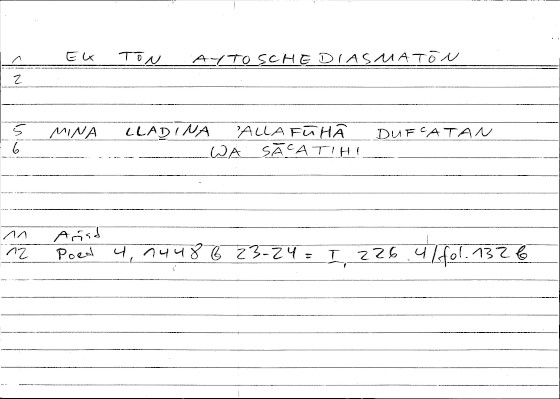 1 EK TŌN AYTOSCHEDIASMATŌN
2
5 MINA LLAḎĪNA 'ALLAFŪHĀ DUFᶜATAN
6 WA SĀᶜATIHI
11 Arist
12 Poet 4, 1448 b 23-24 = I, 226.4/fol. 132 b